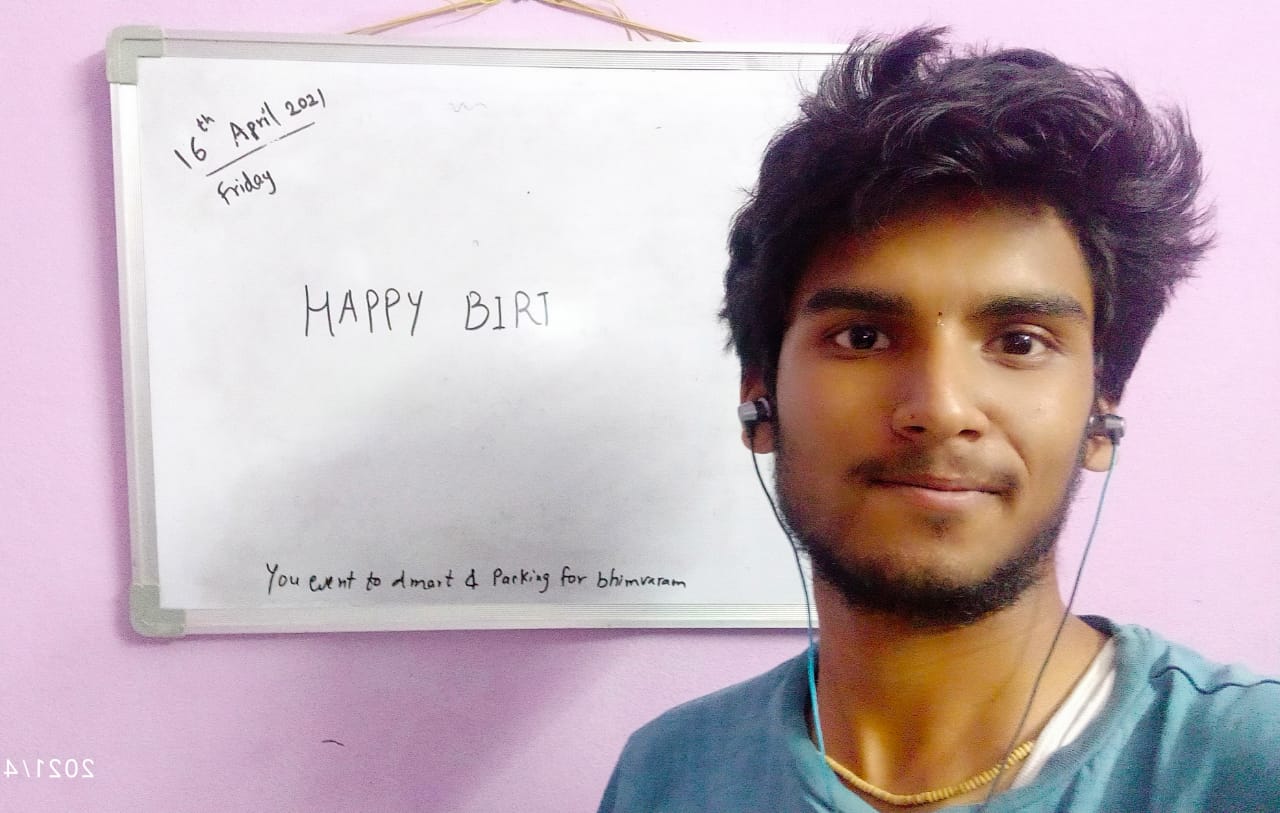 16th April 2021
Friday
HAPPY BIRT
You went to dmart & Packing for bhimvaram
2021/4